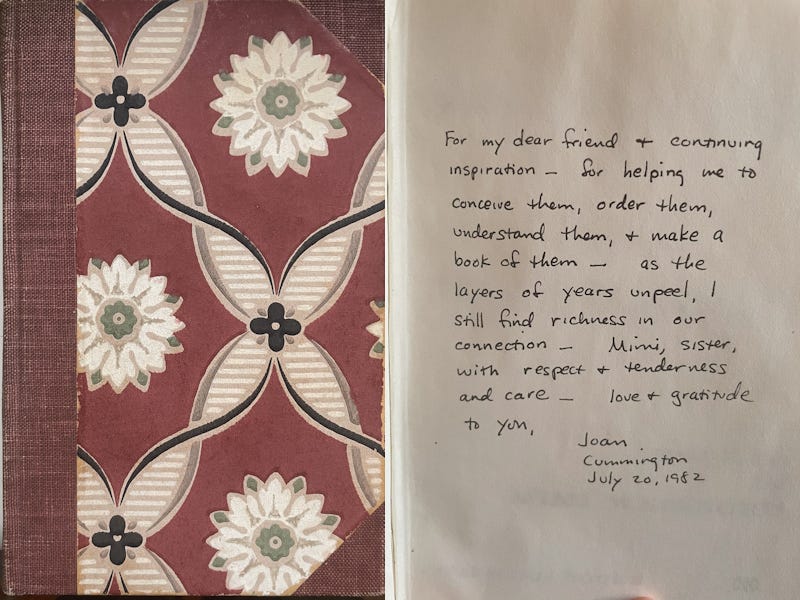 For my dear friend + continuing
inspiration — for helping me to
conceive them, order them,
understand them, + make a
book of them — as the
layers of years unpeel, I
still find richness in our
connection — Mimi, sister,
with respect + tenderness
and care — love + gratitude
to you,
Joan
Cummington
July 20, 1982